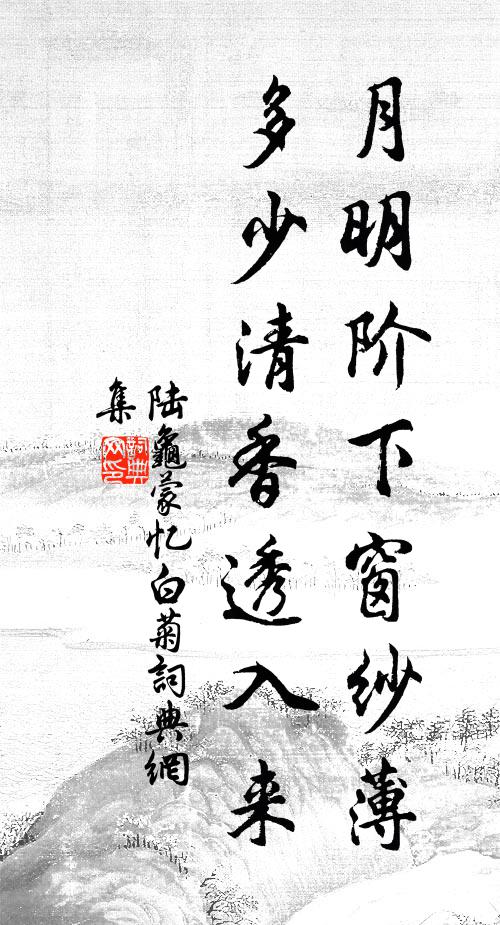 月明阶下窗纱薄
多少清香透入来
陆龜蒙忆白菊詞典網
集
詞典
网印